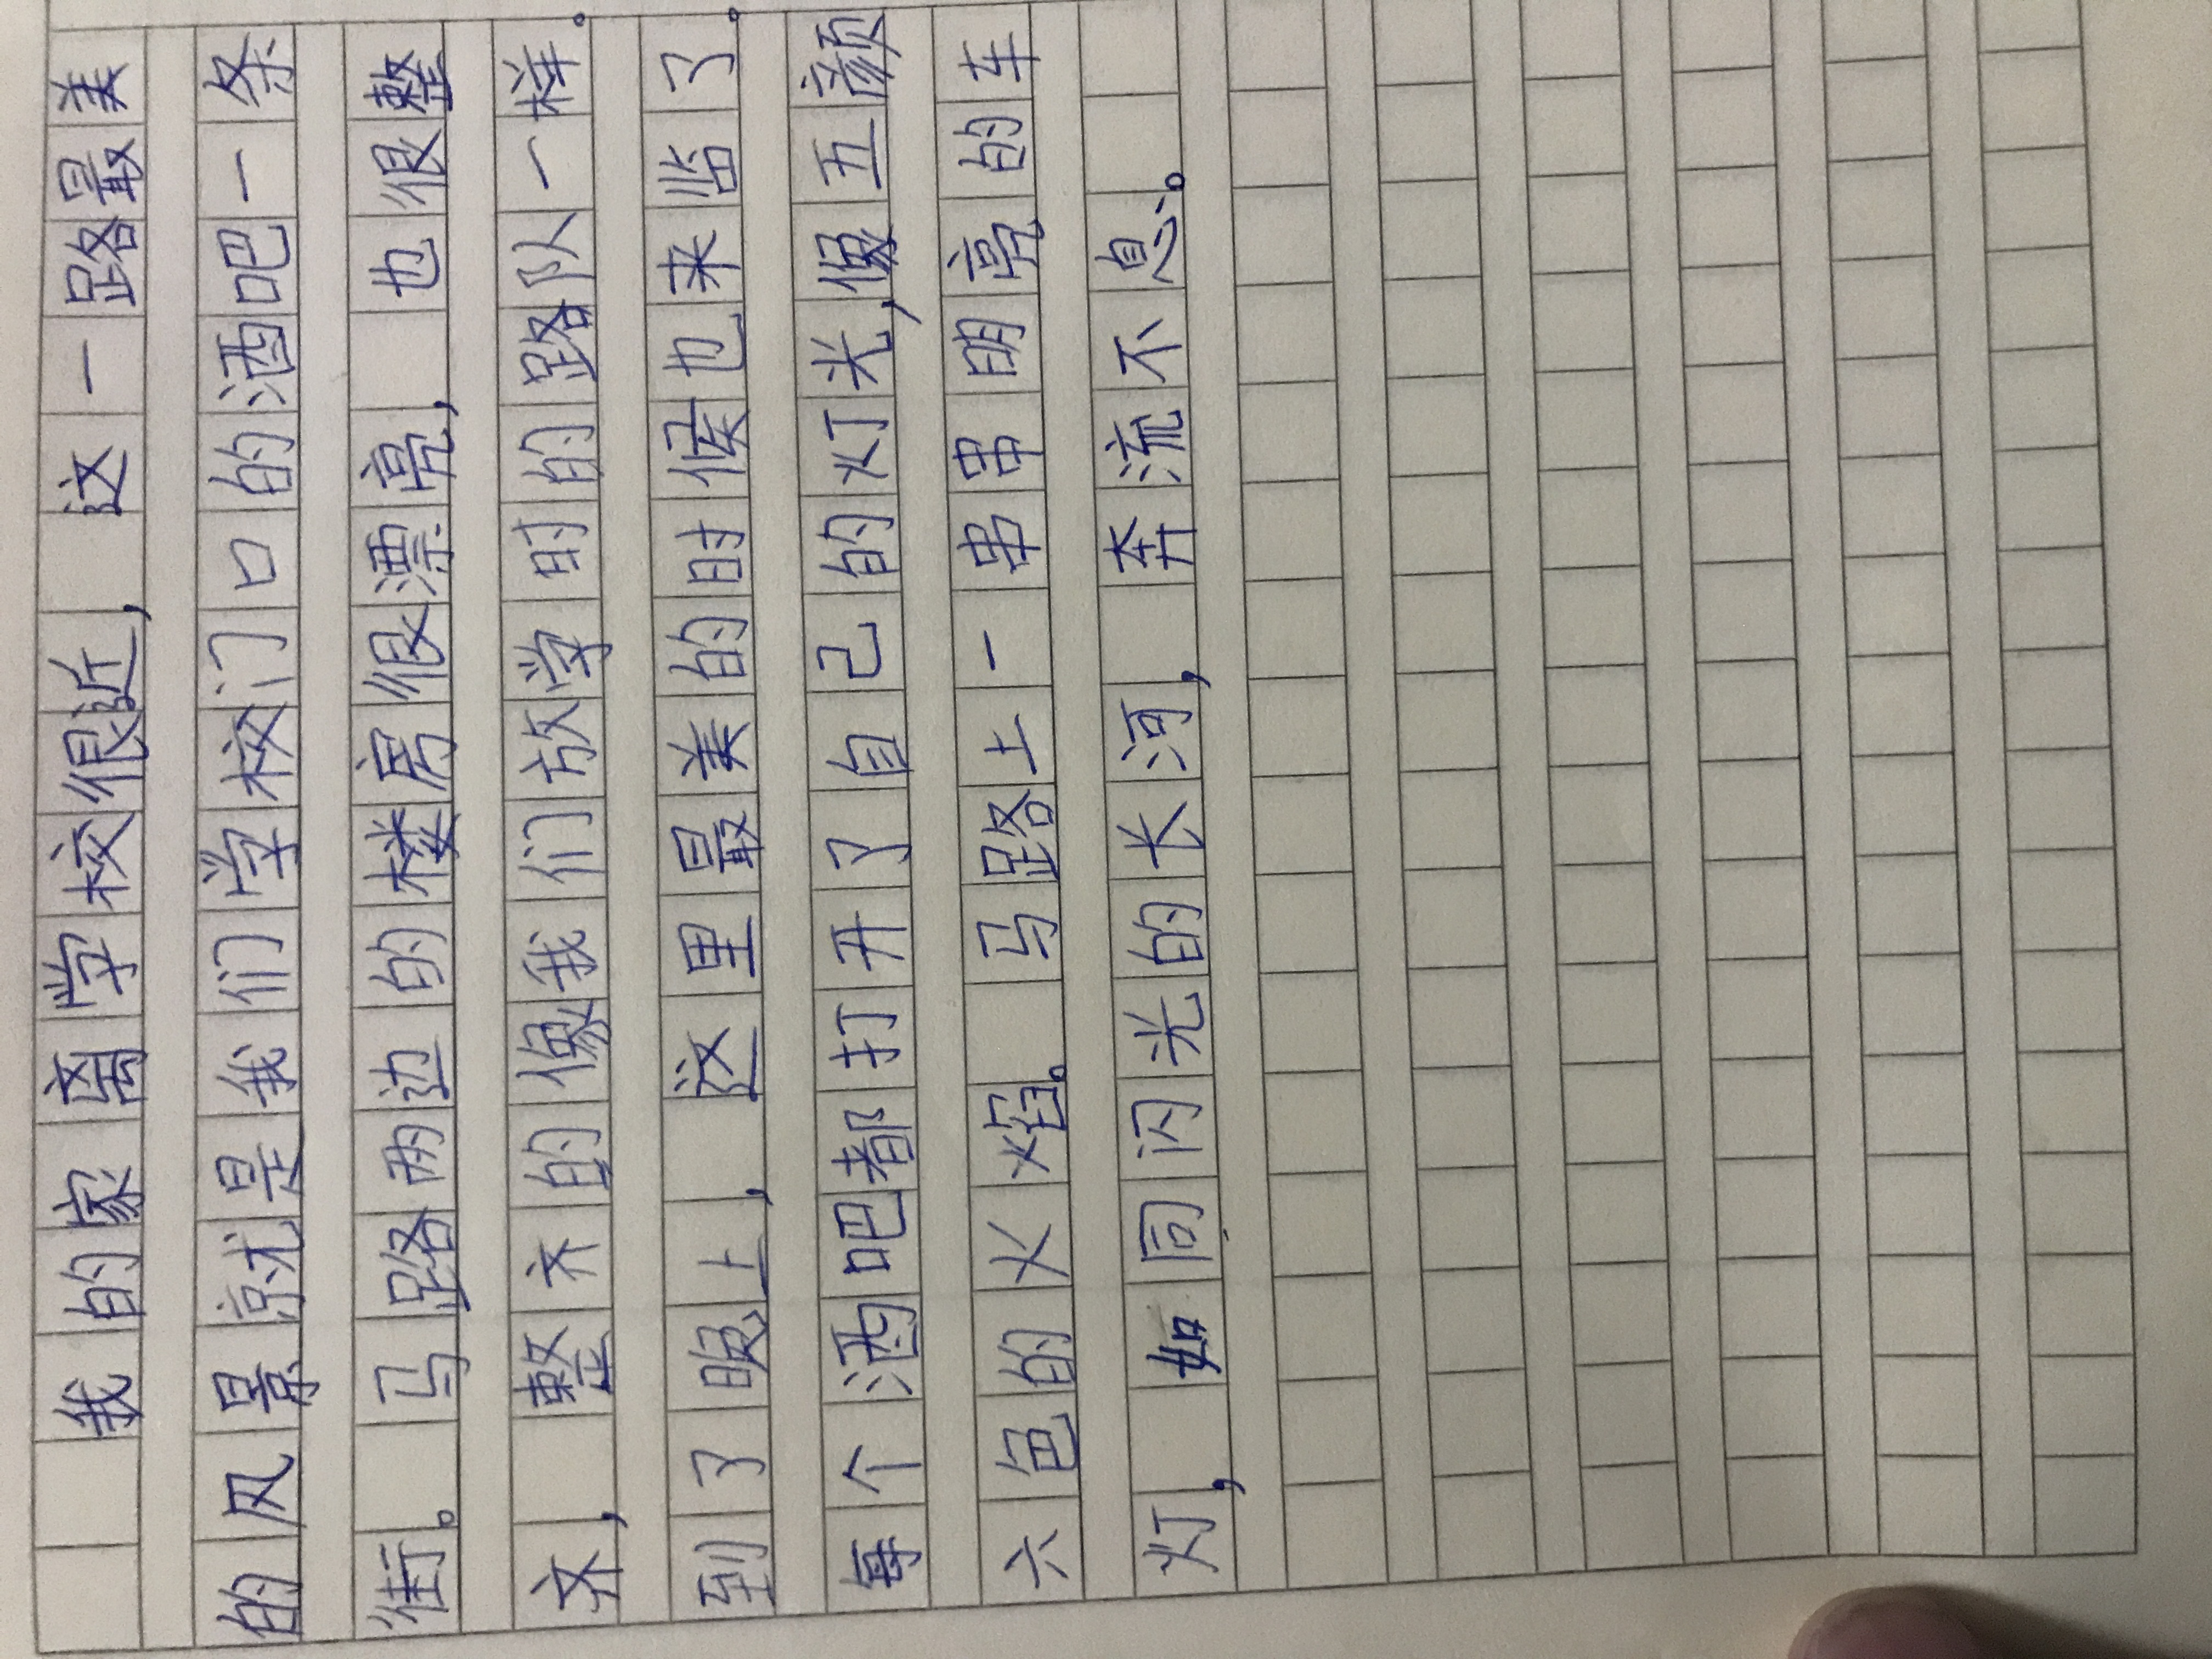 我的家离学校很近，这一路最美
的风景就是我们学校门口的酒吧一条
街。马路两边的楼房很漂亮，也很整
齐，整齐的像我们放学时的路队一样。
到了晚上，这里最美的时候也来临了。
每个酒吧都打开了自己的灯光，像五颜
六色的火焰。马路上一串串明亮的车
灯，如同闪光的长河，奔流不息。